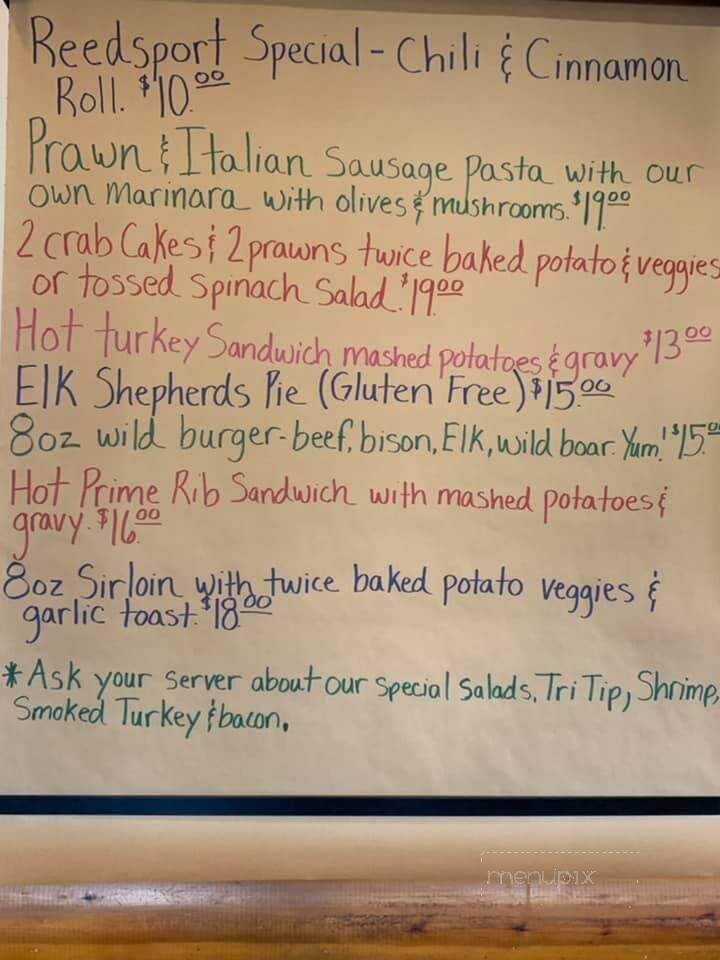 Reedsport Special - Chili & Cinnamon
Roll. $10.00
Prawn & Italian Sausage pasta with our
own marinara with olives & mushrooms. $19.00
2 crab Cakes & 2 prawns twice baked potato & veggies
or tossed spinach Salad. $19.00
Hot turkey Sandwich mashed potatoes & gravy $13.00
Elk Shepherds Pie (Gluten Free) $15.00
8oz wild burger - beef, bison, Elk, wild boar. Yum! $15.00
Hot Prime Rib Sandwich with mashed potatoes &
gravy. $16.00
8oz Sirloin with twice baked potato veggies &
garlic toast. $18.00
*Ask your server about our special Salads, Tri Tip, Shrimp,
Smoked Turkey & bacon.
menupix